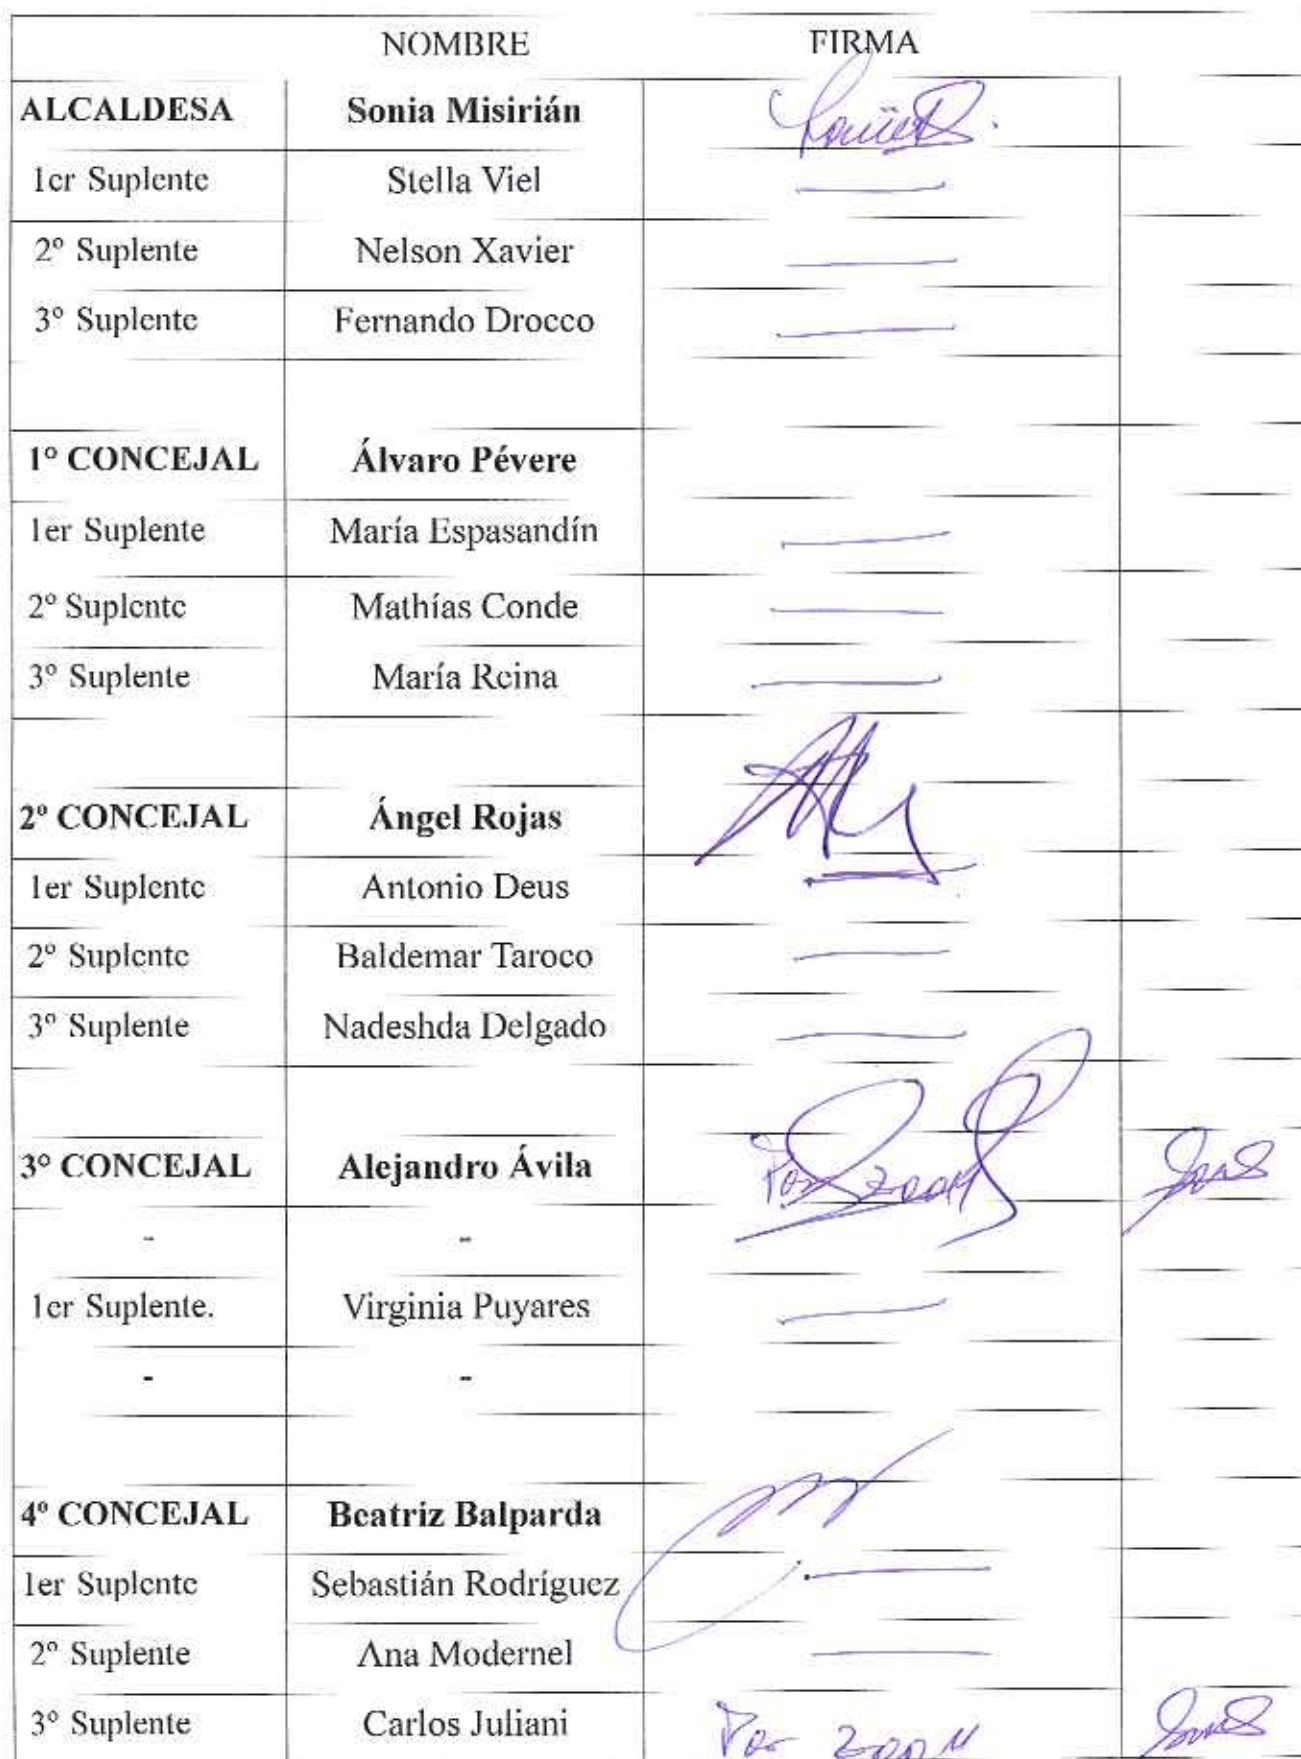 NOMBRE FIRMA
ALCALDESA Sonia Misirián
1er Suplente Stella Viel
2º Suplente Nelson Xavier
3º Suplente Fernando Drocco
1º CONCEJAL Álvaro Pévere
1er Suplente María Espasandín
2º Suplente Mathías Conde
3º Suplente María Reina
2º CONCEJAL Ángel Rojas
1er Suplente Antonio Deus
2º Suplente Baldemar Taroco
3º Suplente Nadeshda Delgado
3º CONCEJAL Alejandro Ávila Por zoom
- -
1er Suplente. Virginia Puyares
- -
4º CONCEJAL Beatriz Balparda
1er Suplente Sebastián Rodríguez
2º Suplente Ana Modernel
3º Suplente Carlos Juliani Por zoom